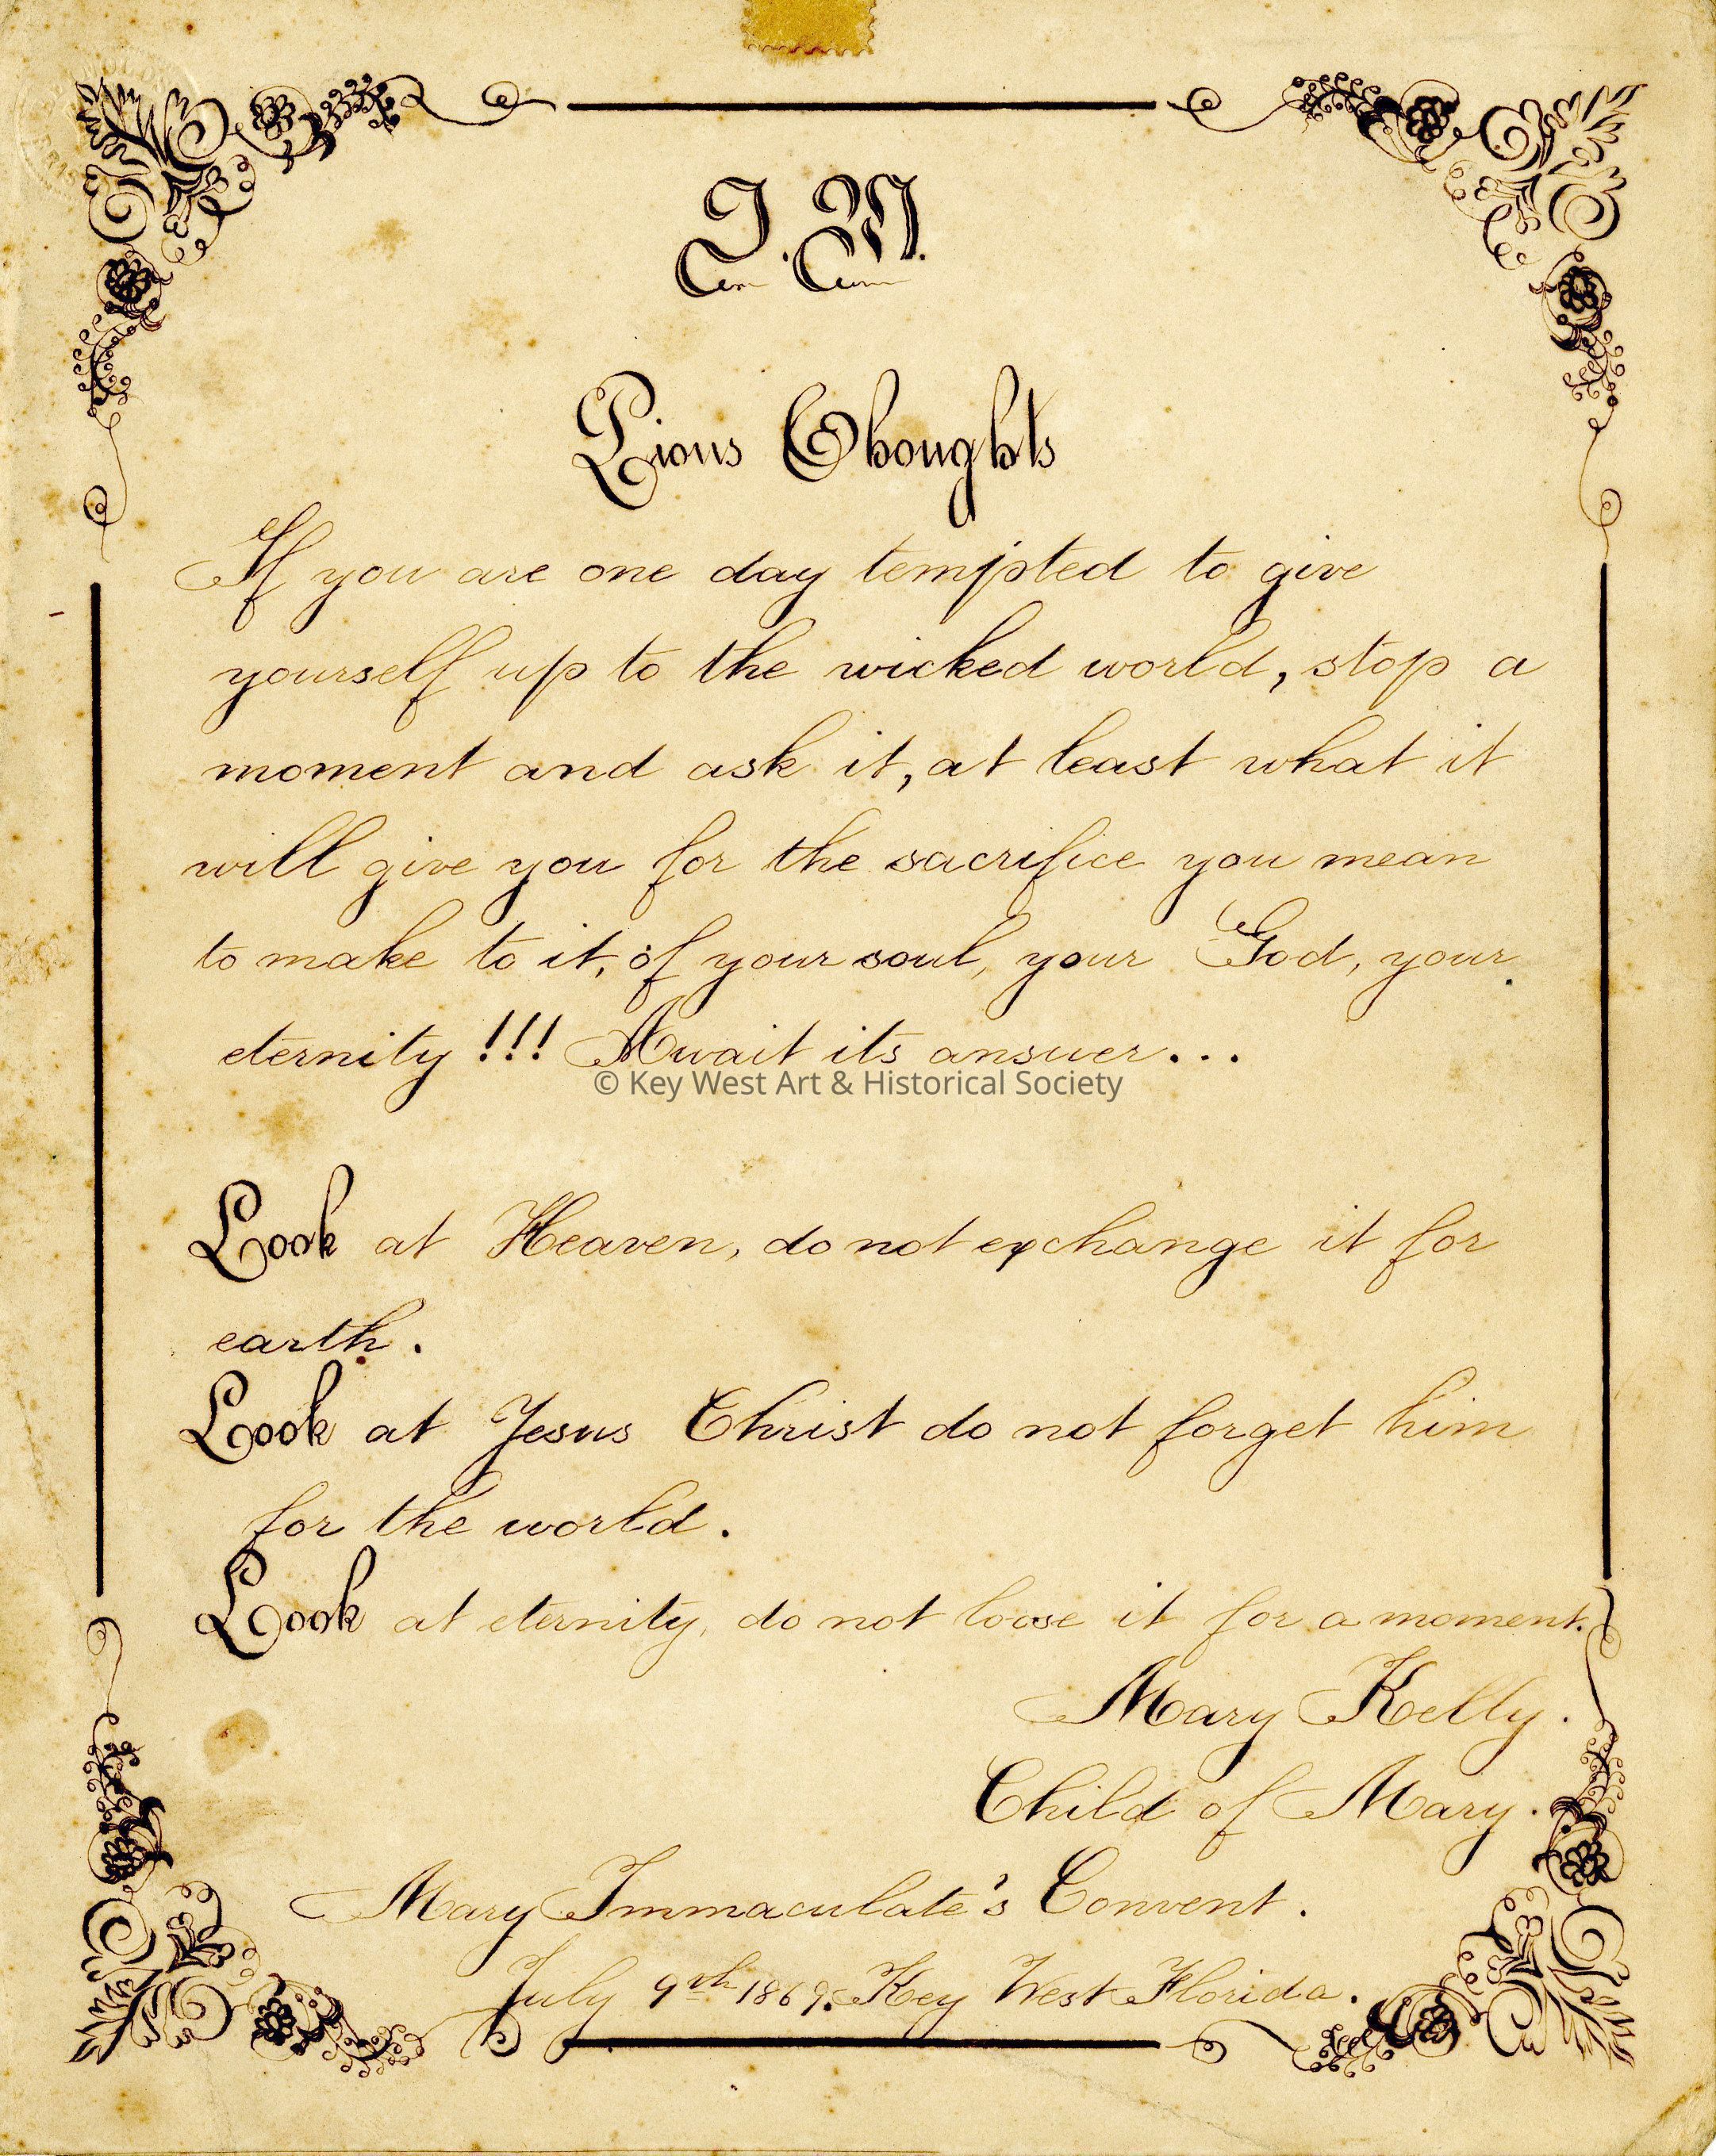 J. M.
Pious Thoughts
If you are one day tempted to give
yourself up to the wicked world, stop a
moment and ask it, at least what it
will give you for the sacrifice you mean
to make to it, of your soul, your God, your
eternity !!! Await its answer...
© Key West Art & Historical Society
Look at Heaven, do not exchange it for
earth.
Look at Jesus Christ do not forget him
for the world.
Look at eternity, do not loose it for a moment.
Mary Kelly.
Child of Mary.
Mary Immaculate's Convent.
July 9th 1869. Key West Florida.